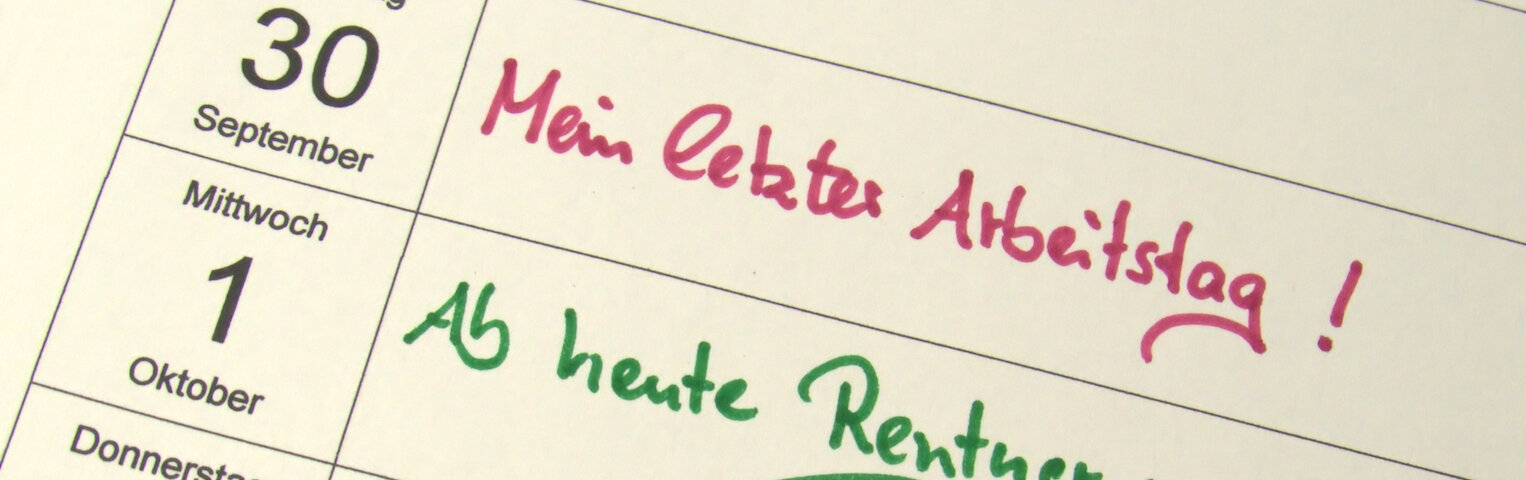 30
September
Mein letzter Arbeitstag !
Mittwoch
1
Oktober
Ab heute Rentner